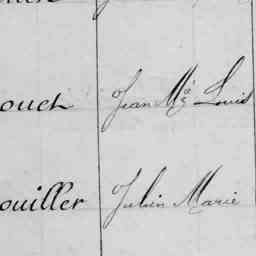 ouch Jean M^e Louis
ouiller Julien Marie